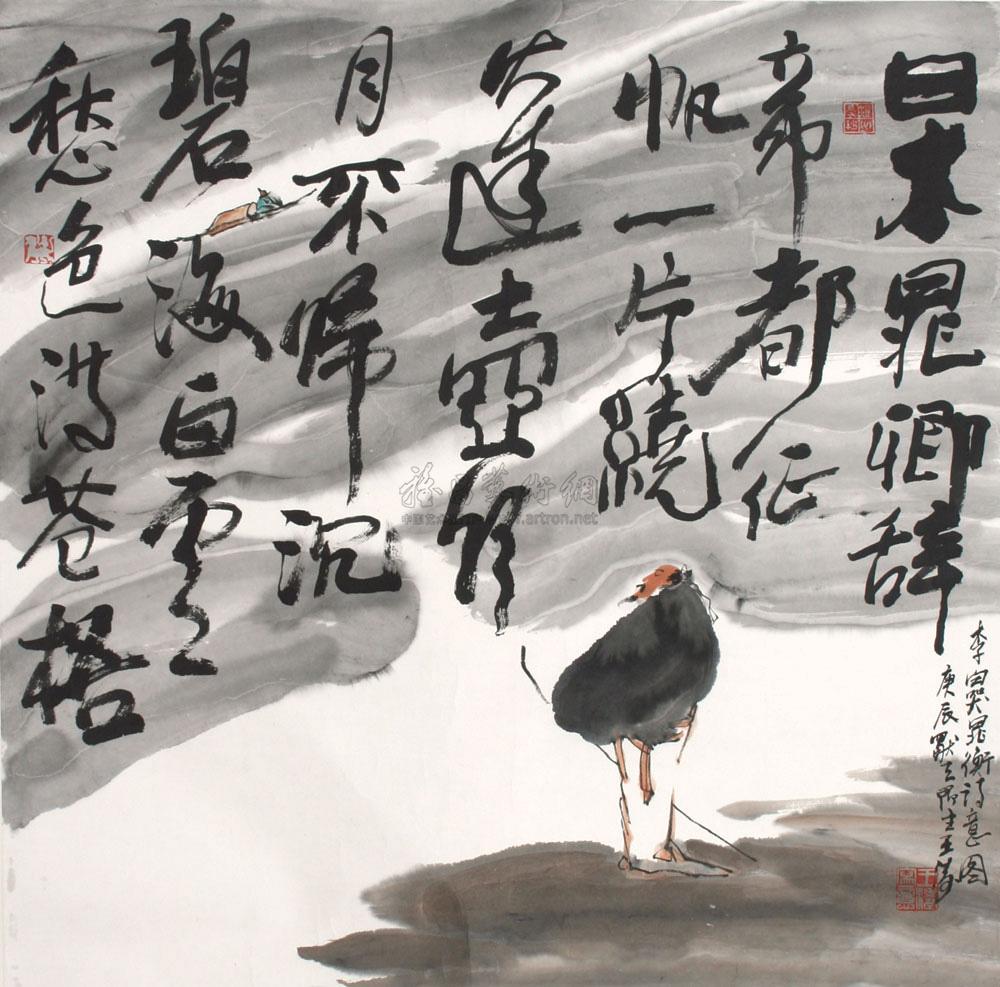 日本晁卿辞
帝都征
帆一片繞
蓬壺明
月不歸沉
碧海白雲
愁色满苍梧
李白哭晁衡诗意图
庚辰 主王涛
雅昌藝術網
www.artron.net